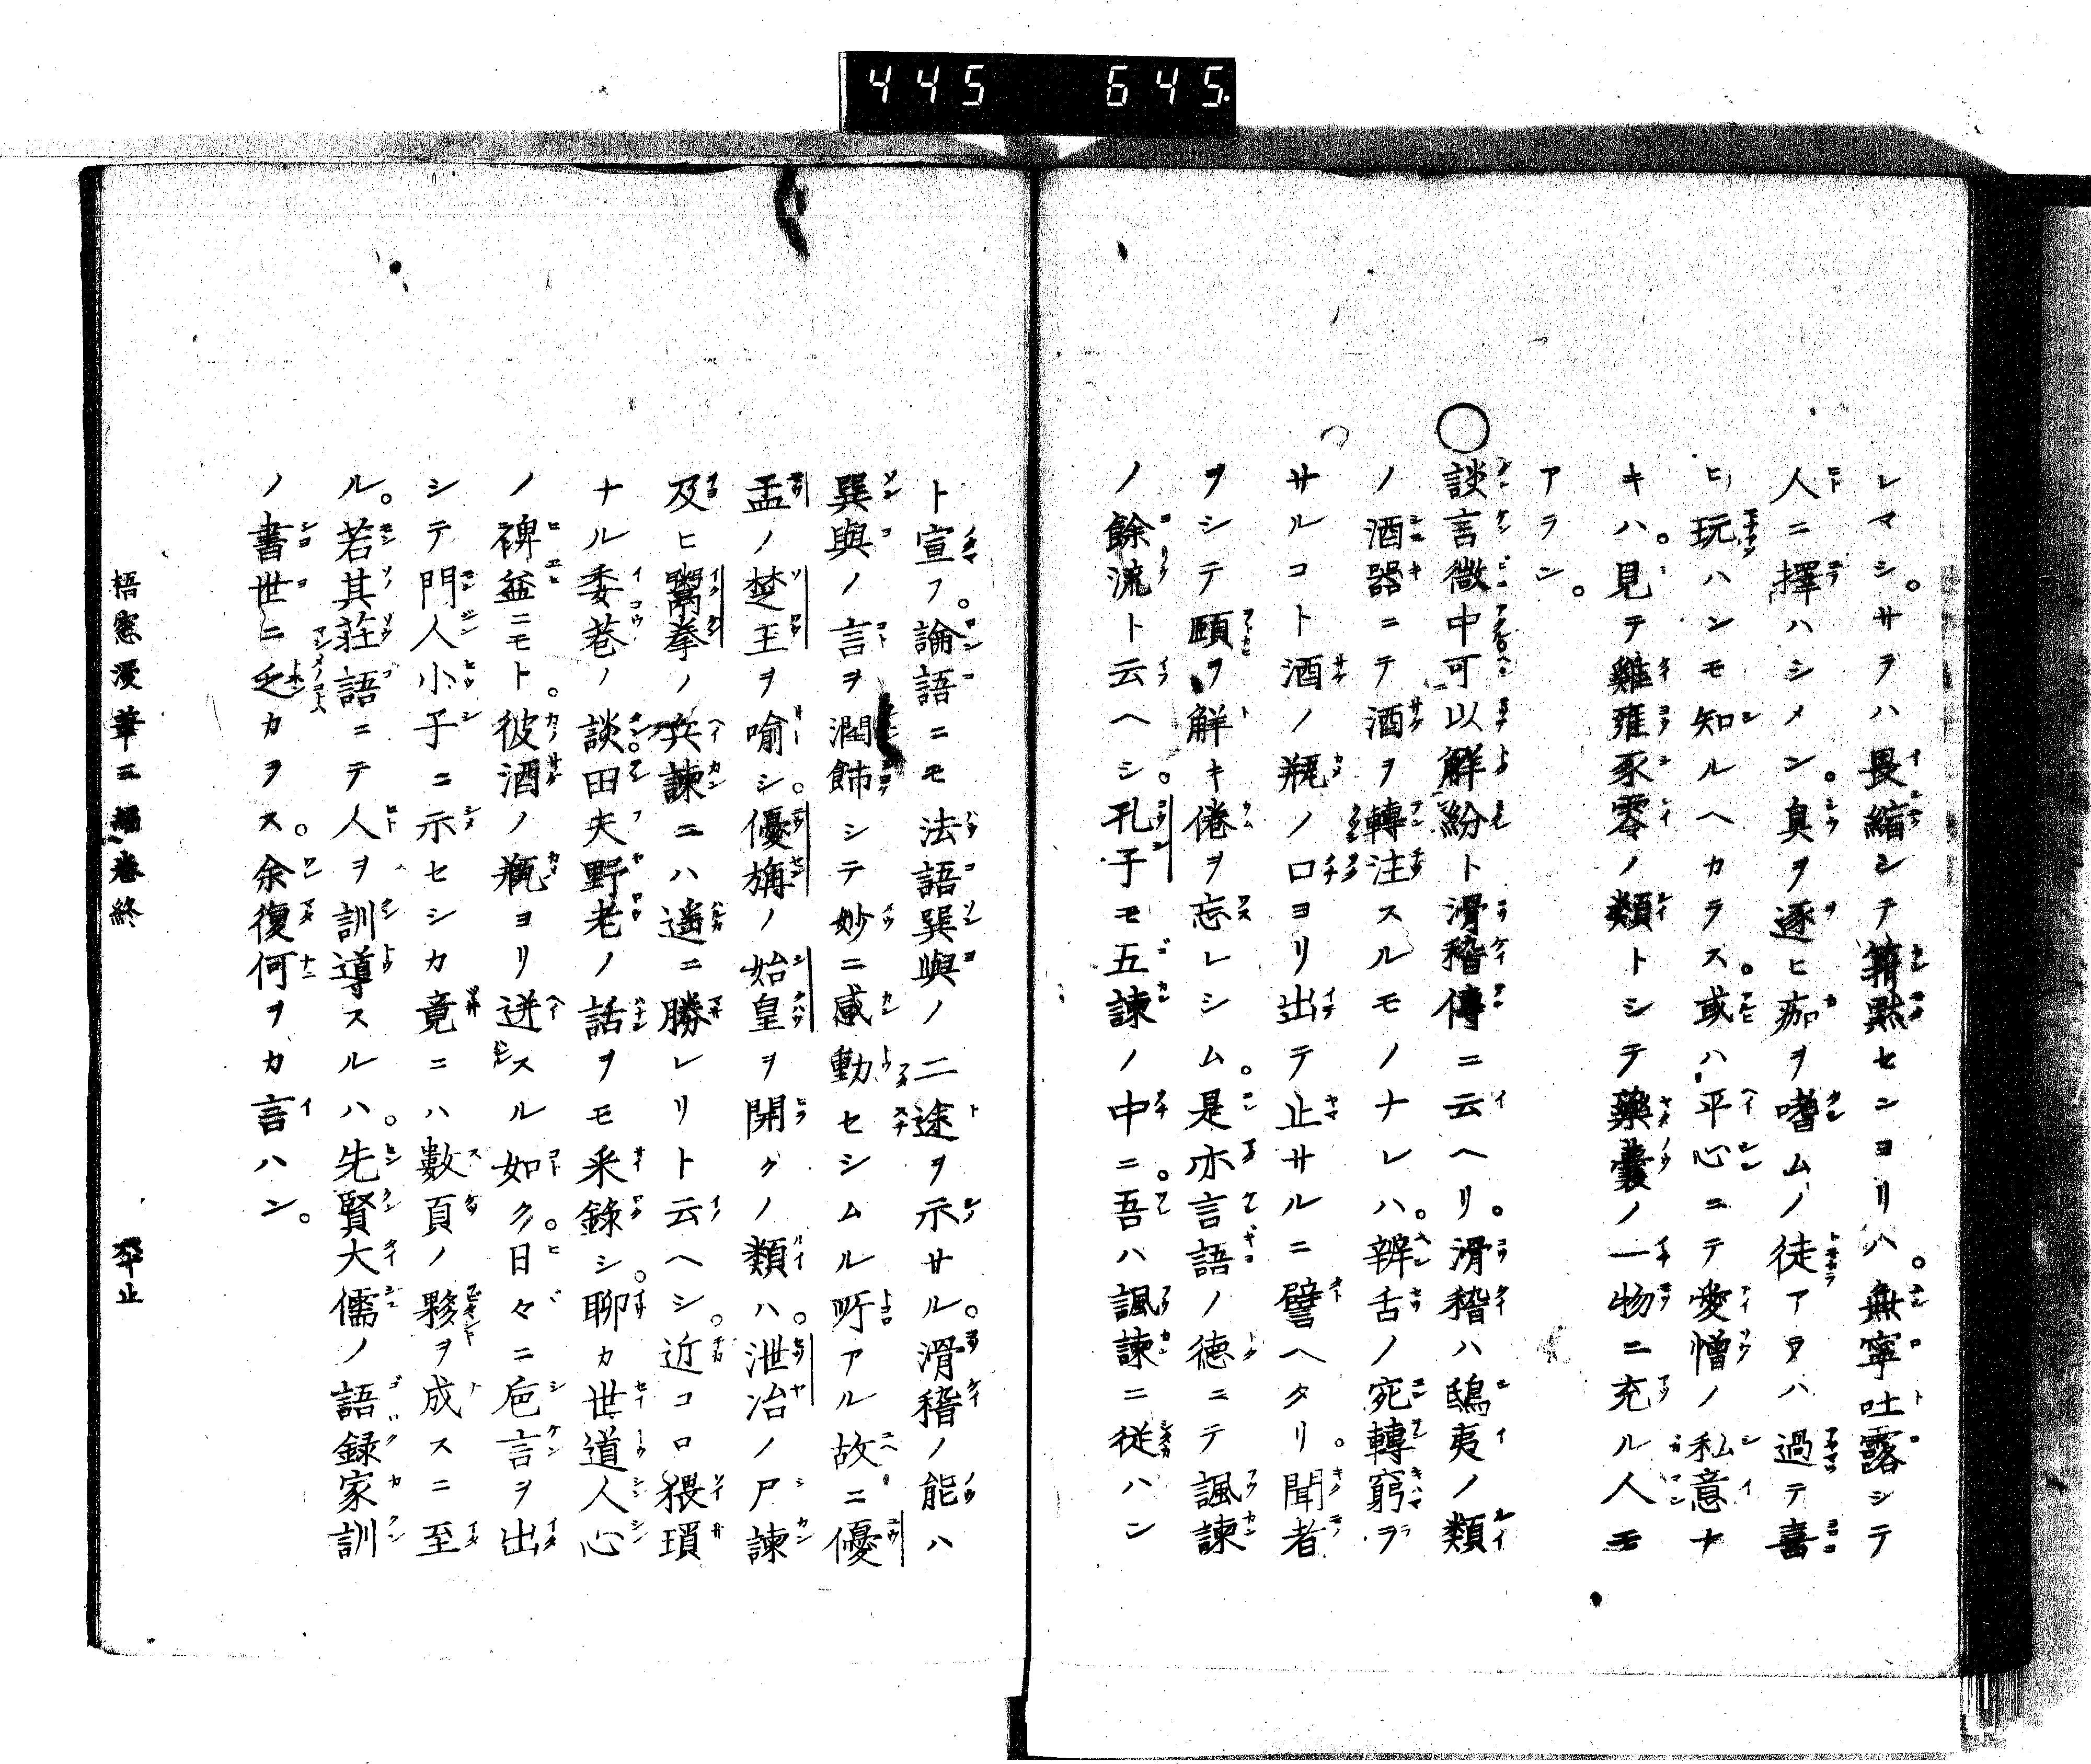 445 645.
レマシ。サヲハ畏縮シテ箝黙センヨリハ。無寧吐露シテ
人ニ擇ハシメン。臭ヲ逐ヒ痂ヲ嗜ムノ徒アラハ過テ喜
ヒ玩ハンモ知ルヘカラス。或ハ平心ニテ愛憎ノ私意ナ
キハ。見テ雞雍豕零ノ類トシテ藥囊ノ一物ニ充ル人モ
アラン。
○談言微中可以解紛ト滑稽傳ニ云ヘリ。滑稽ハ鴟夷ノ類
ノ酒器ニテ酒ヲ轉注スルモノナレハ。辨舌ノ宛轉窮ラ
サルコト酒ノ瓶ノ口ヨリ出テ止サルニ譬ヘタリ。聞者
ヲシテ頤ヲ解キ倦ヲ忘レシム。是亦言語ノ徳ニテ諷諫
ノ餘流ト云ヘシ。孔子モ五諫ノ中ニ。吾ハ諷諫ニ従ハン
ト宣フ。論語ニモ法語巽與ノ二途ヲ示サル。滑稽ノ能ハ
巽與ノ言ヲ潤飾シテ妙ニ感動セシムル所アル故ニ優
孟ノ楚王ヲ喻シ。優旃ノ始皇ヲ開クノ類ハ。泄冶ノ尸諫
及ヒ鬻拳ノ兵諫ニハ遥ニ勝レリト云ヘシ。近コロ猥瑣
ナル委巷ノ談田夫野老ノ話ヲモ采錄シ。聊カ世道人心
ノ裨益ニモト。彼酒ノ瓶ヨリ迸スル如ク。日々ニ巵言ヲ出
シテ門人小子ニ示セシカ竟ニハ數頁ノ夥ヲ成スニ至
ル。若其荘語ニテ人ヲ訓導スルハ。先賢大儒ノ語録家訓
ノ書世ニ乏カラス。余復何ヲカ言ハン。
梧窓漫筆三編 巻終